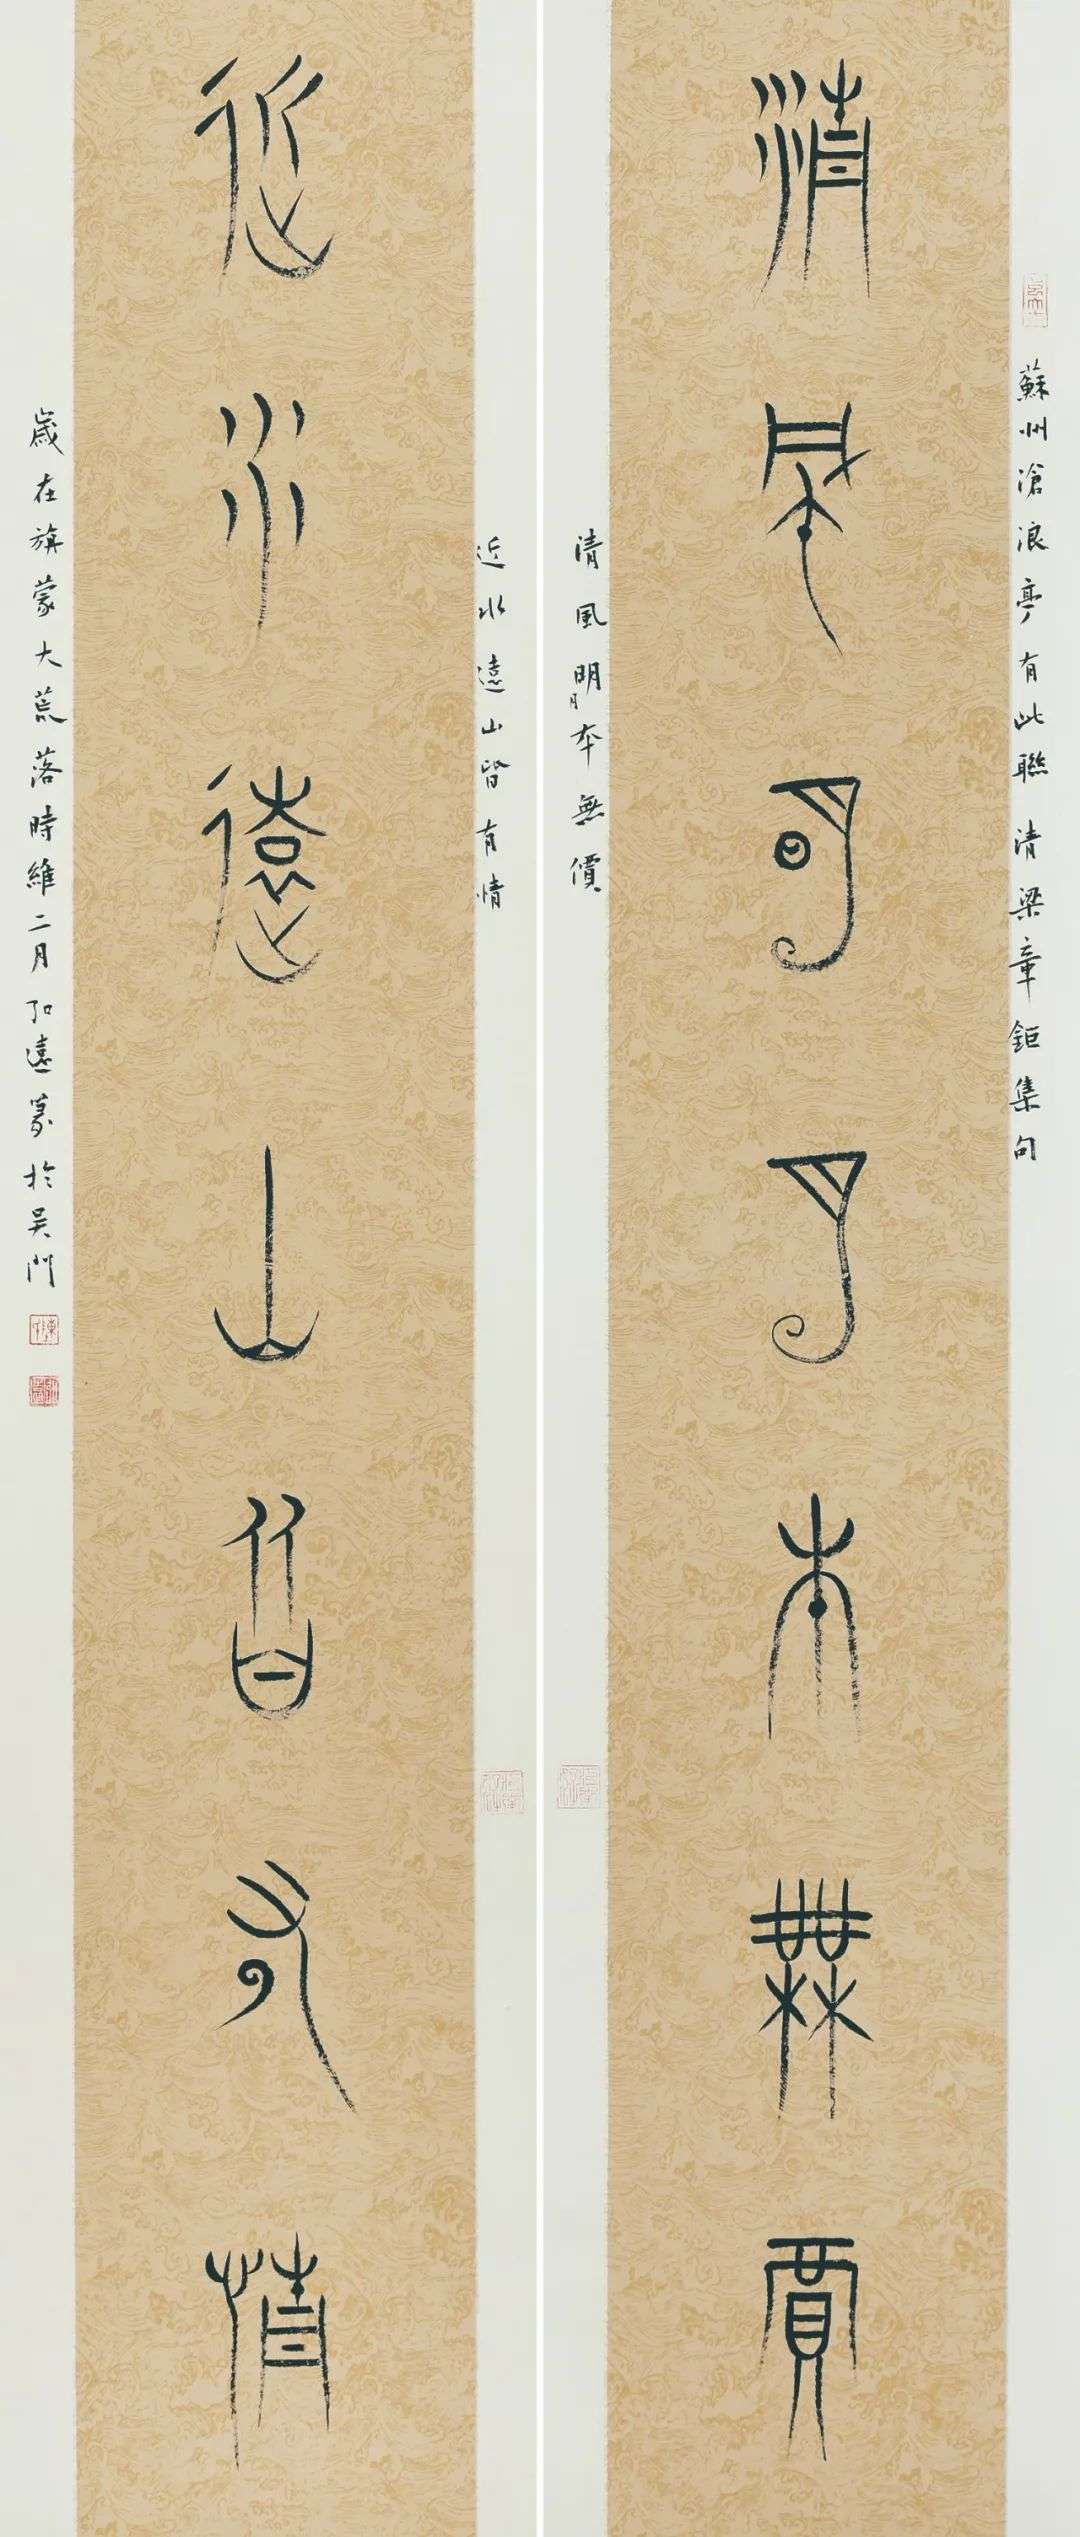 蘇州滄浪亭有此聯 清梁章鉅集句
清風明月本無賈
清風明月本無價
近水遠山皆有情
近水遠山皆有情
歲在旃蒙大荒落時維二月弘遠篆於吳門